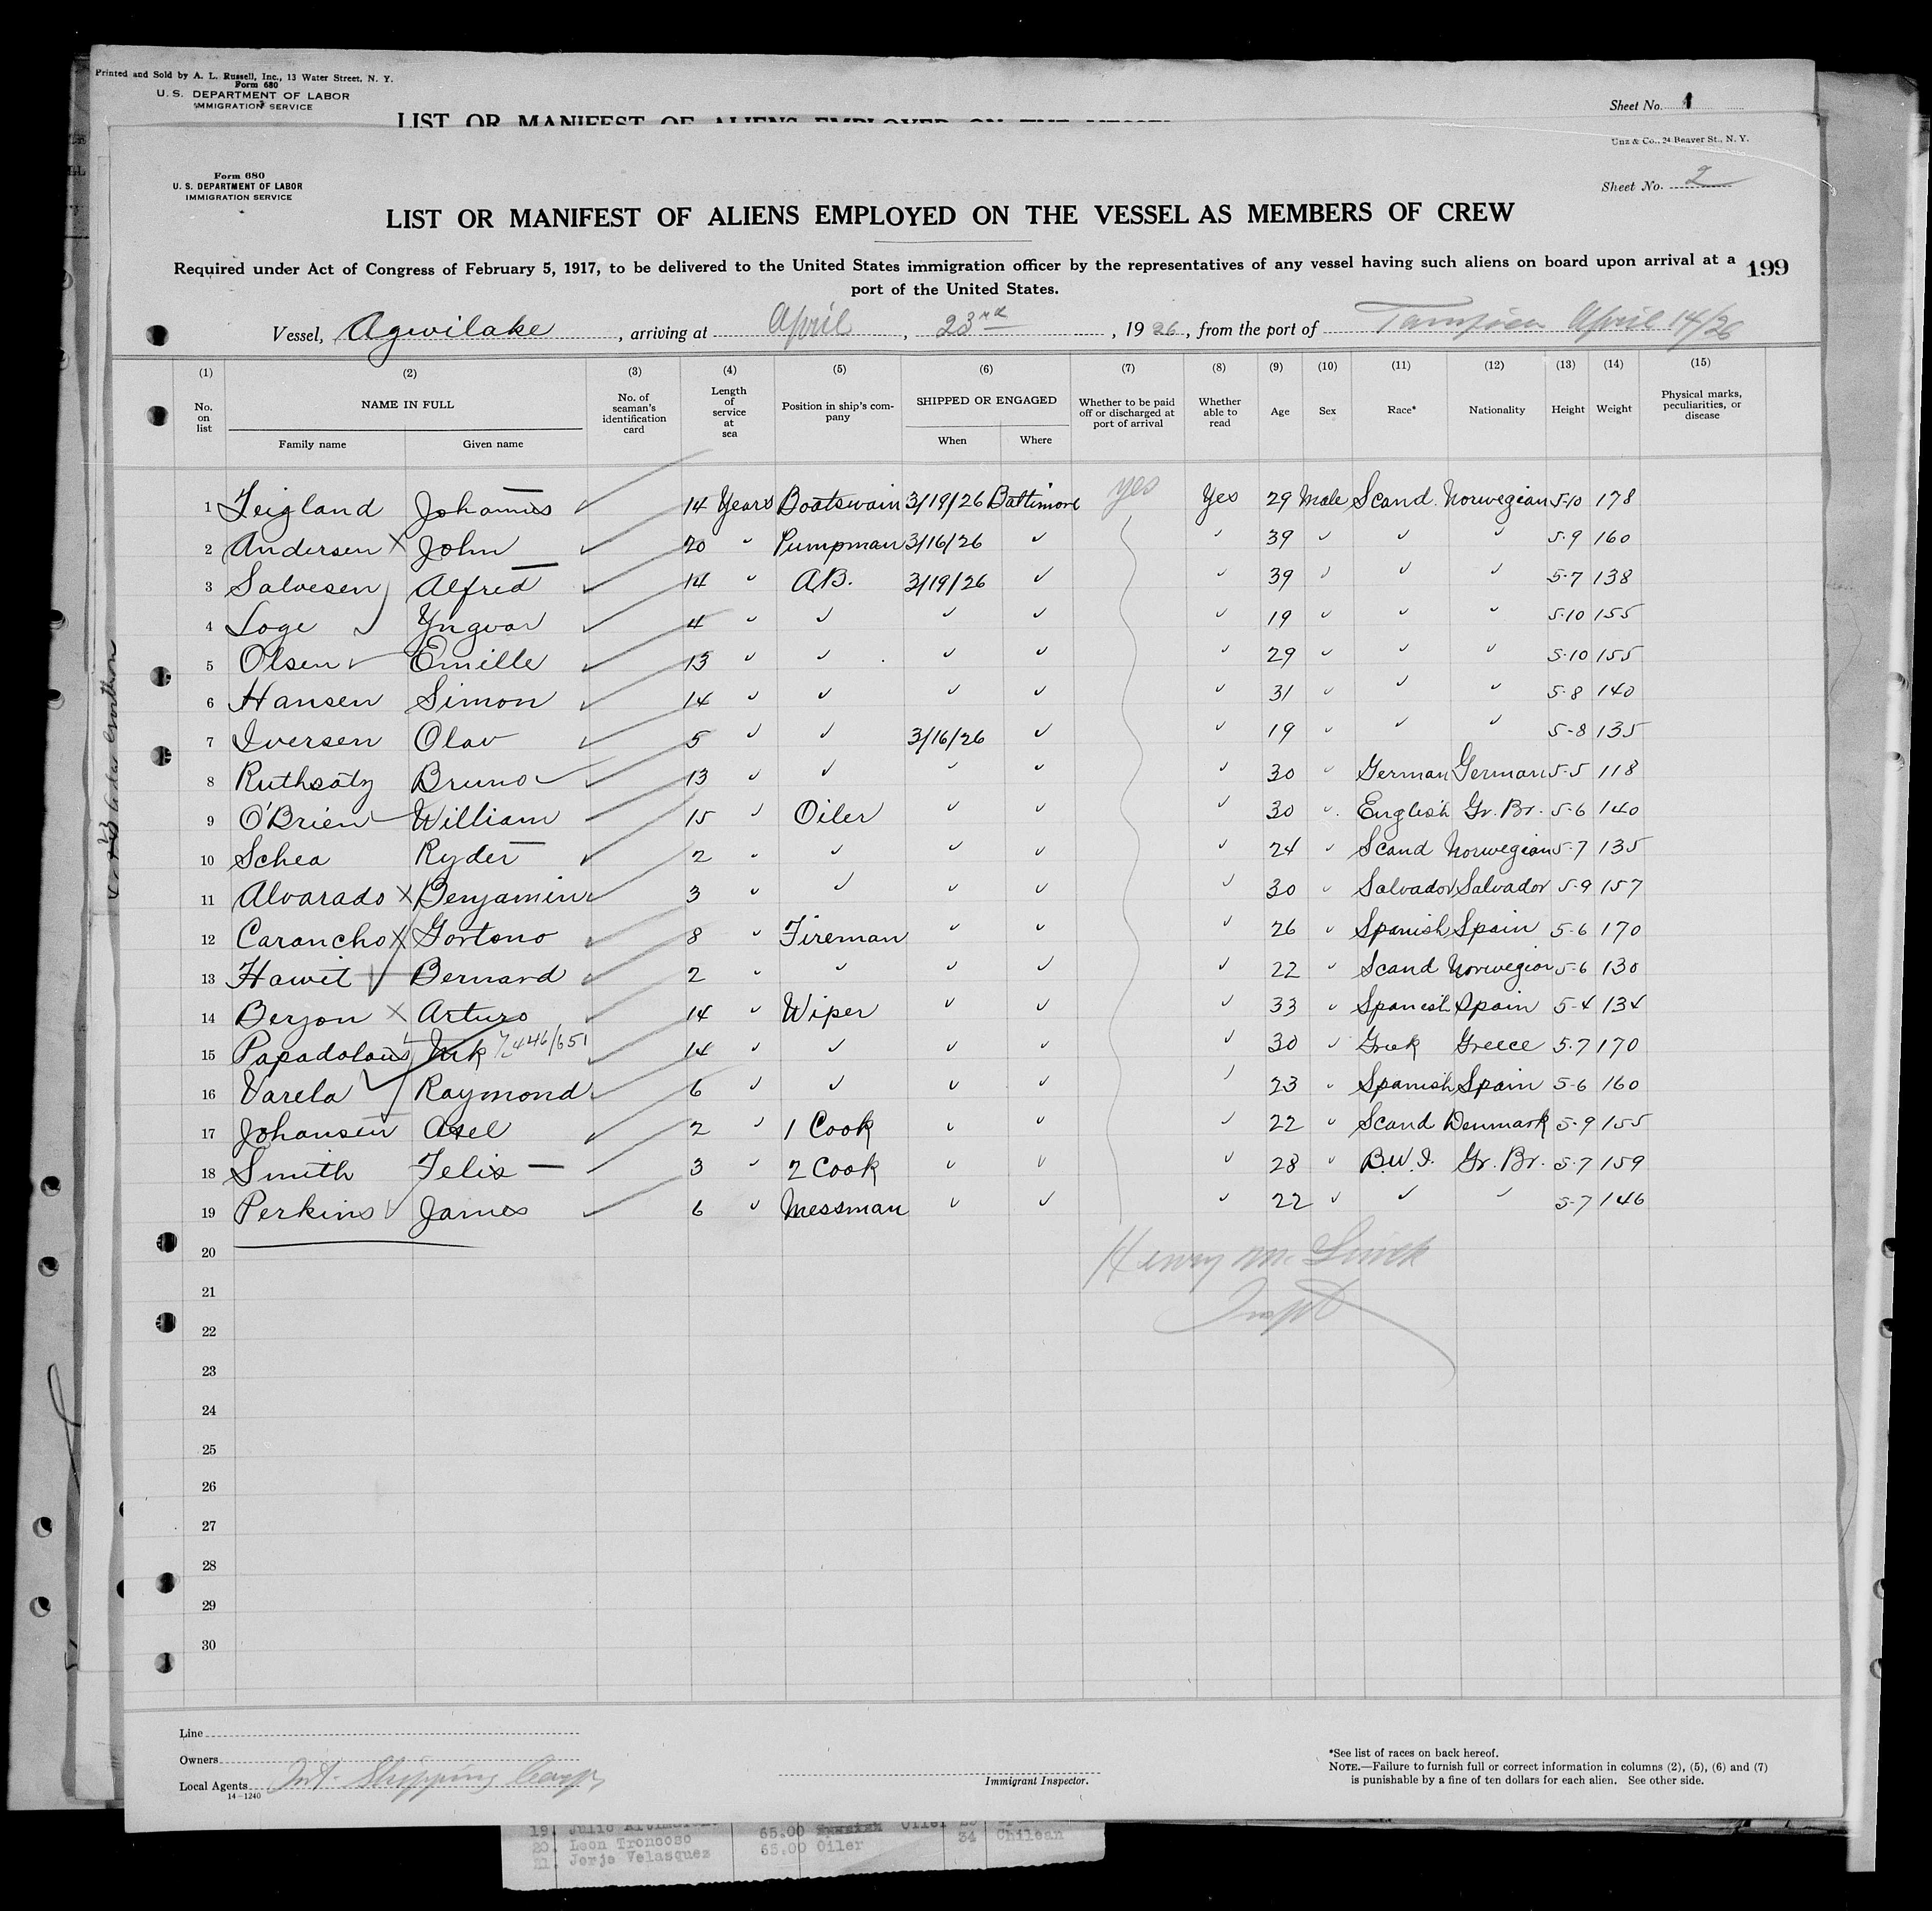 Printed and Sold by A. L. Russell, Inc., 13 Water Street, N. Y.
Form 680
U. S. DEPARTMENT OF LABOR
IMMIGRATION SERVICE
Sheet No. 1
LIST OR MANIFEST OF ALIENS EMPLOYED ON THE VESSEL
Unz & Co., 24 Beaver St., N. Y.
Form 680
U. S. DEPARTMENT OF LABOR
IMMIGRATION SERVICE
Sheet No. 2
LIST OR MANIFEST OF ALIENS EMPLOYED ON THE VESSEL AS MEMBERS OF CREW
Required under Act of Congress of February 5, 1917, to be delivered to the United States immigration officer by the representatives of any vessel having such aliens on board upon arrival at a
port of the United States.
199
Vessel, Agwilake, arriving at April, 23rd, 1926, from the port of Tampico April 14/26
(1) (2) (3) (4) (5) (6) (7) (8) (9) (10) (11) (12) (13) (14) (15)
No. on list NAME IN FULL Family name Given name No. of seaman's identification card Length of service at sea Position in ship's company SHIPPED OR ENGAGED When Where Whether to be paid off or discharged at port of arrival Whether able to read Age Sex Race* Nationality Height Weight Physical marks, peculiarities, or disease
1 Teigland Johannes ✓ 14 Years Boatswain 3/19/26 Baltimore yes Yes 29 Male Scand. Norwegian 5-10 178
2 Andersen X John ✓ 20 " Pumpman 3/16/26 " " 39 " " " 5-9 160
3 Salvesen Alfred ✓ 14 " A.B. 3/19/26 " " 39 " " " 5-7 138
4 Loge ✓ Yngvar ✓ 4 " " " " " 19 " " " 5-10 155
5 Olsen ✓ Emille ✓ 13 " " " " " 29 " " " 5-10 155
6 Hansen Simon ✓ 14 " " " " " 31 " " " 5-8 140
7 Iversen Olav ✓ 5 " " 3/16/26 " " 19 " " " 5-8 135
8 Ruthsatz Bruno ✓ 13 " " " " " 30 " German German 5-5 118
9 O'Brien William 15 " Oiler " " " 30 " English Gr. Br. 5-6 140
10 Schea Ryder ✓ 2 " " " " " 24 " Scand Norwegian 5-7 135
11 Alvarado X Benjamin ✓ 3 " " " " " 30 " Salvador Salvador 5-9 157
12 Carancho X Gortono ✓ 8 " Fireman " " " 26 " Spanish Spain 5-6 170
13 Hawit ✓ Bernard ✓ 2 " " " " " 22 " Scand Norwegian 5-6 130
14 Berjon X Arturo ✓ 14 " Wiper " " " 33 " Spanish Spain 5-4 134
15 Papadolous ✓ 14 " " " " " 30 " Greek Greece 5-7 170
16 Varela ✓ Raymond ✓ 6 " " " " " 23 " Spanish Spain 5-6 160
17 Johansen Axel ✓ 2 " 1 Cook " " " 22 " Scand Denmark 5-9 155
18 Smith Felix — 3 " 2 Cook " " " 28 " B.W.I. Gr. Br. 5-7 159
19 Perkins ✓ James ✓ 6 " Messman " " " 22 " " " 5-7 146
20
Henry M.
21
Inspt
22
23
24
25
26
27
28
29
30
Line
Owners
Local Agents Int. Shipping Corp.
14-1240
Immigrant Inspector.
*See list of races on back hereof.
NOTE.—Failure to furnish full or correct information in columns (2), (5), (6) and (7)
is punishable by a fine of ten dollars for each alien. See other side.
19. Julio
20. Leon Troncoso 65.00 Oiler 34 Chilean
21. Jorje Velasquez 65.00 Oiler